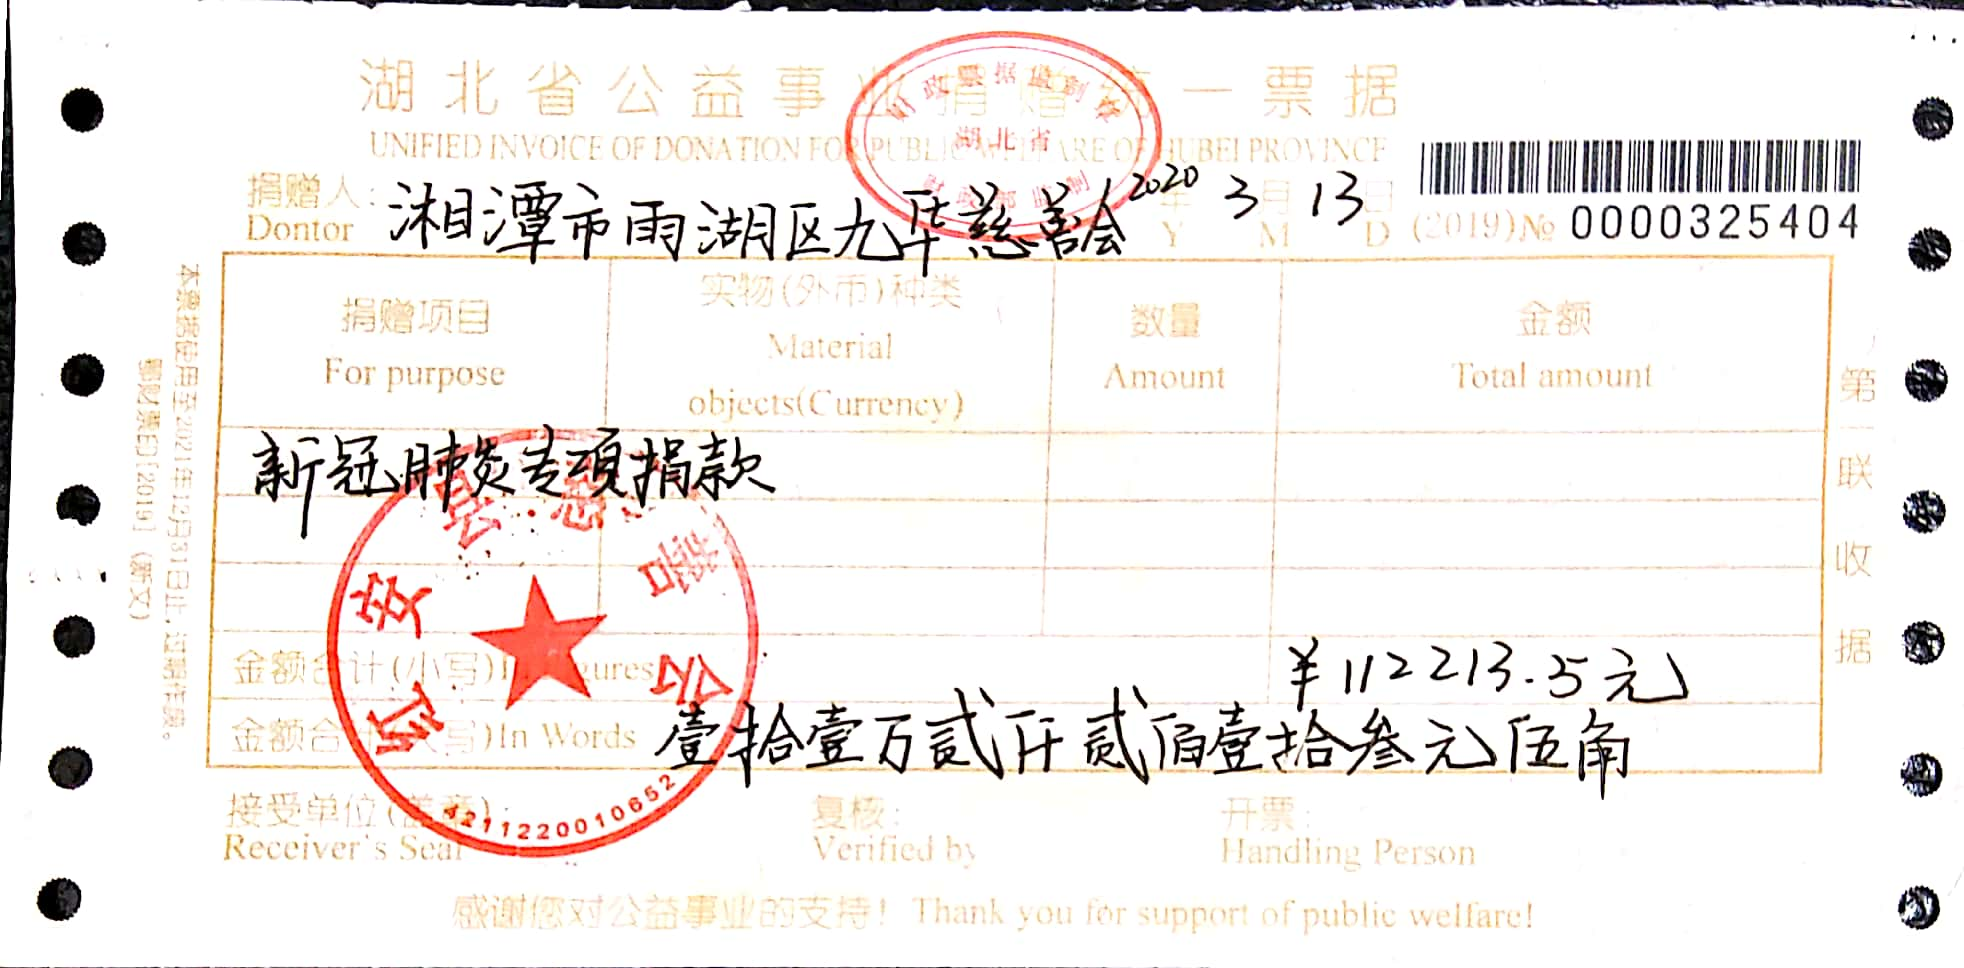 湖北省公益事业捐赠统一票据
UNIFIED INVOICE OF DONATION FOR PUBLIC WELFARE OF HUBEI PROVINCE
财政票据监制章
湖北省
财政部监制
捐赠人: 湘潭市雨湖区九华慈善会 2020 年 3 月 13 日
Dontor Y M D (2019)№ 0000325404
捐赠项目 实物(外币)种类 数量 金额
For purpose Material objects(Currency) Amount Total amount
新冠肺炎专项捐款
金额合计(小写)In Figures ¥112213.5元
金额合计(大写)In Words 壹拾壹万贰仟贰佰壹拾叁元伍角
红安县慈善会
4211220010652
接受单位(盖章): 复核: 开票:
Receiver's Seal Verified by Handling Person
感谢您对公益事业的支持! Thank you for support of public welfare!
第一联 收据
本票据使用至2021年12月31日止,过期作废。
鄂财票印[2019] (新文)